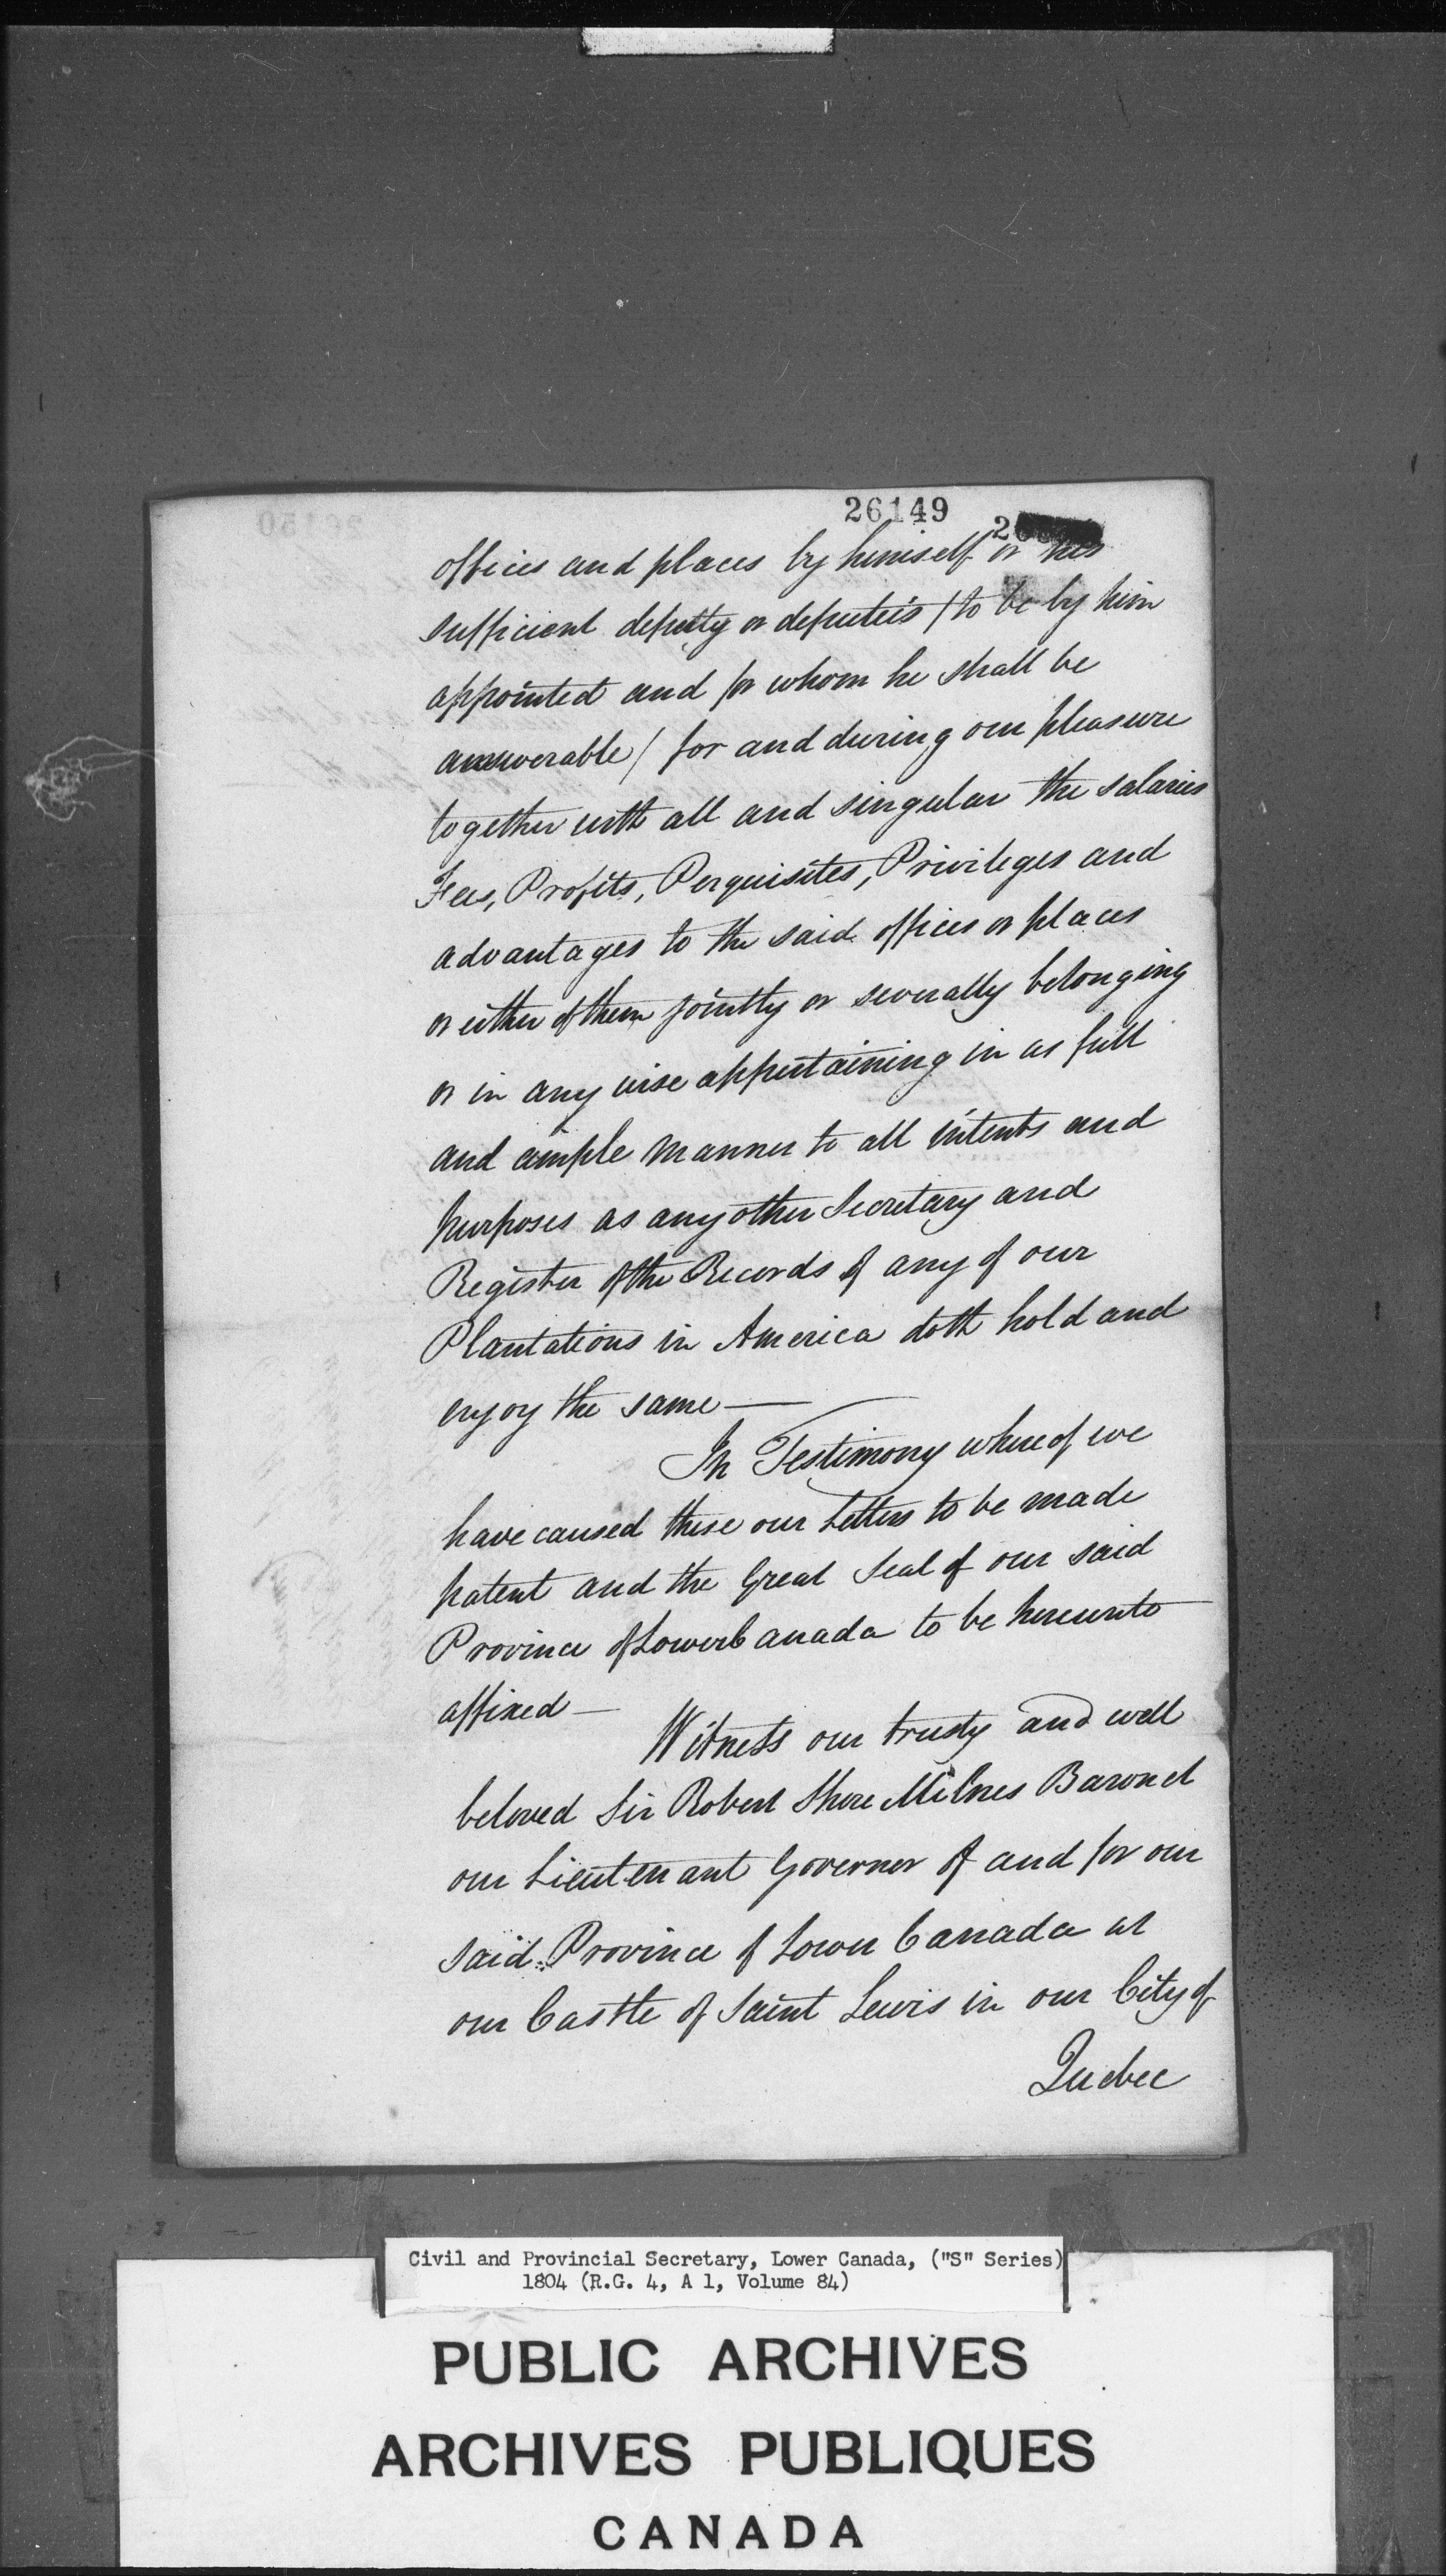 26149
offices and places by himself or his
sufficient deputty or deputeis / to be by him
appointed and for whom he shall be
answerable / for and during our pleasure
together with all and singular the salaries
Fees, Profits, Perquisites, Privileges and
advantages to the said offices or places
or either of them jointly or severally belonging
or in any wise appertaining in as full
and ample manner to all intents and
purposes as any other Secretary and
Register of the Records of any of our
Plantations in America doth hold and
enjoy the same —
In Testimony whereof we
have caused these our Letters to be made
patent and the Great Seal of our said
Province of Lower Canada to be hereunto
affixed —
Witness our trusty and well
beloved Sir Robert Shore Milnes Baronet
our Lieutenant Governor of and for our
said Province of Lower Canada at
our Castle of Saint Lewis in our City of
Quebec
Civil and Provincial Secretary, Lower Canada, ("S" Series)
1804 (R.G. 4, A 1, Volume 84)
PUBLIC ARCHIVES
ARCHIVES PUBLIQUES
CANADA